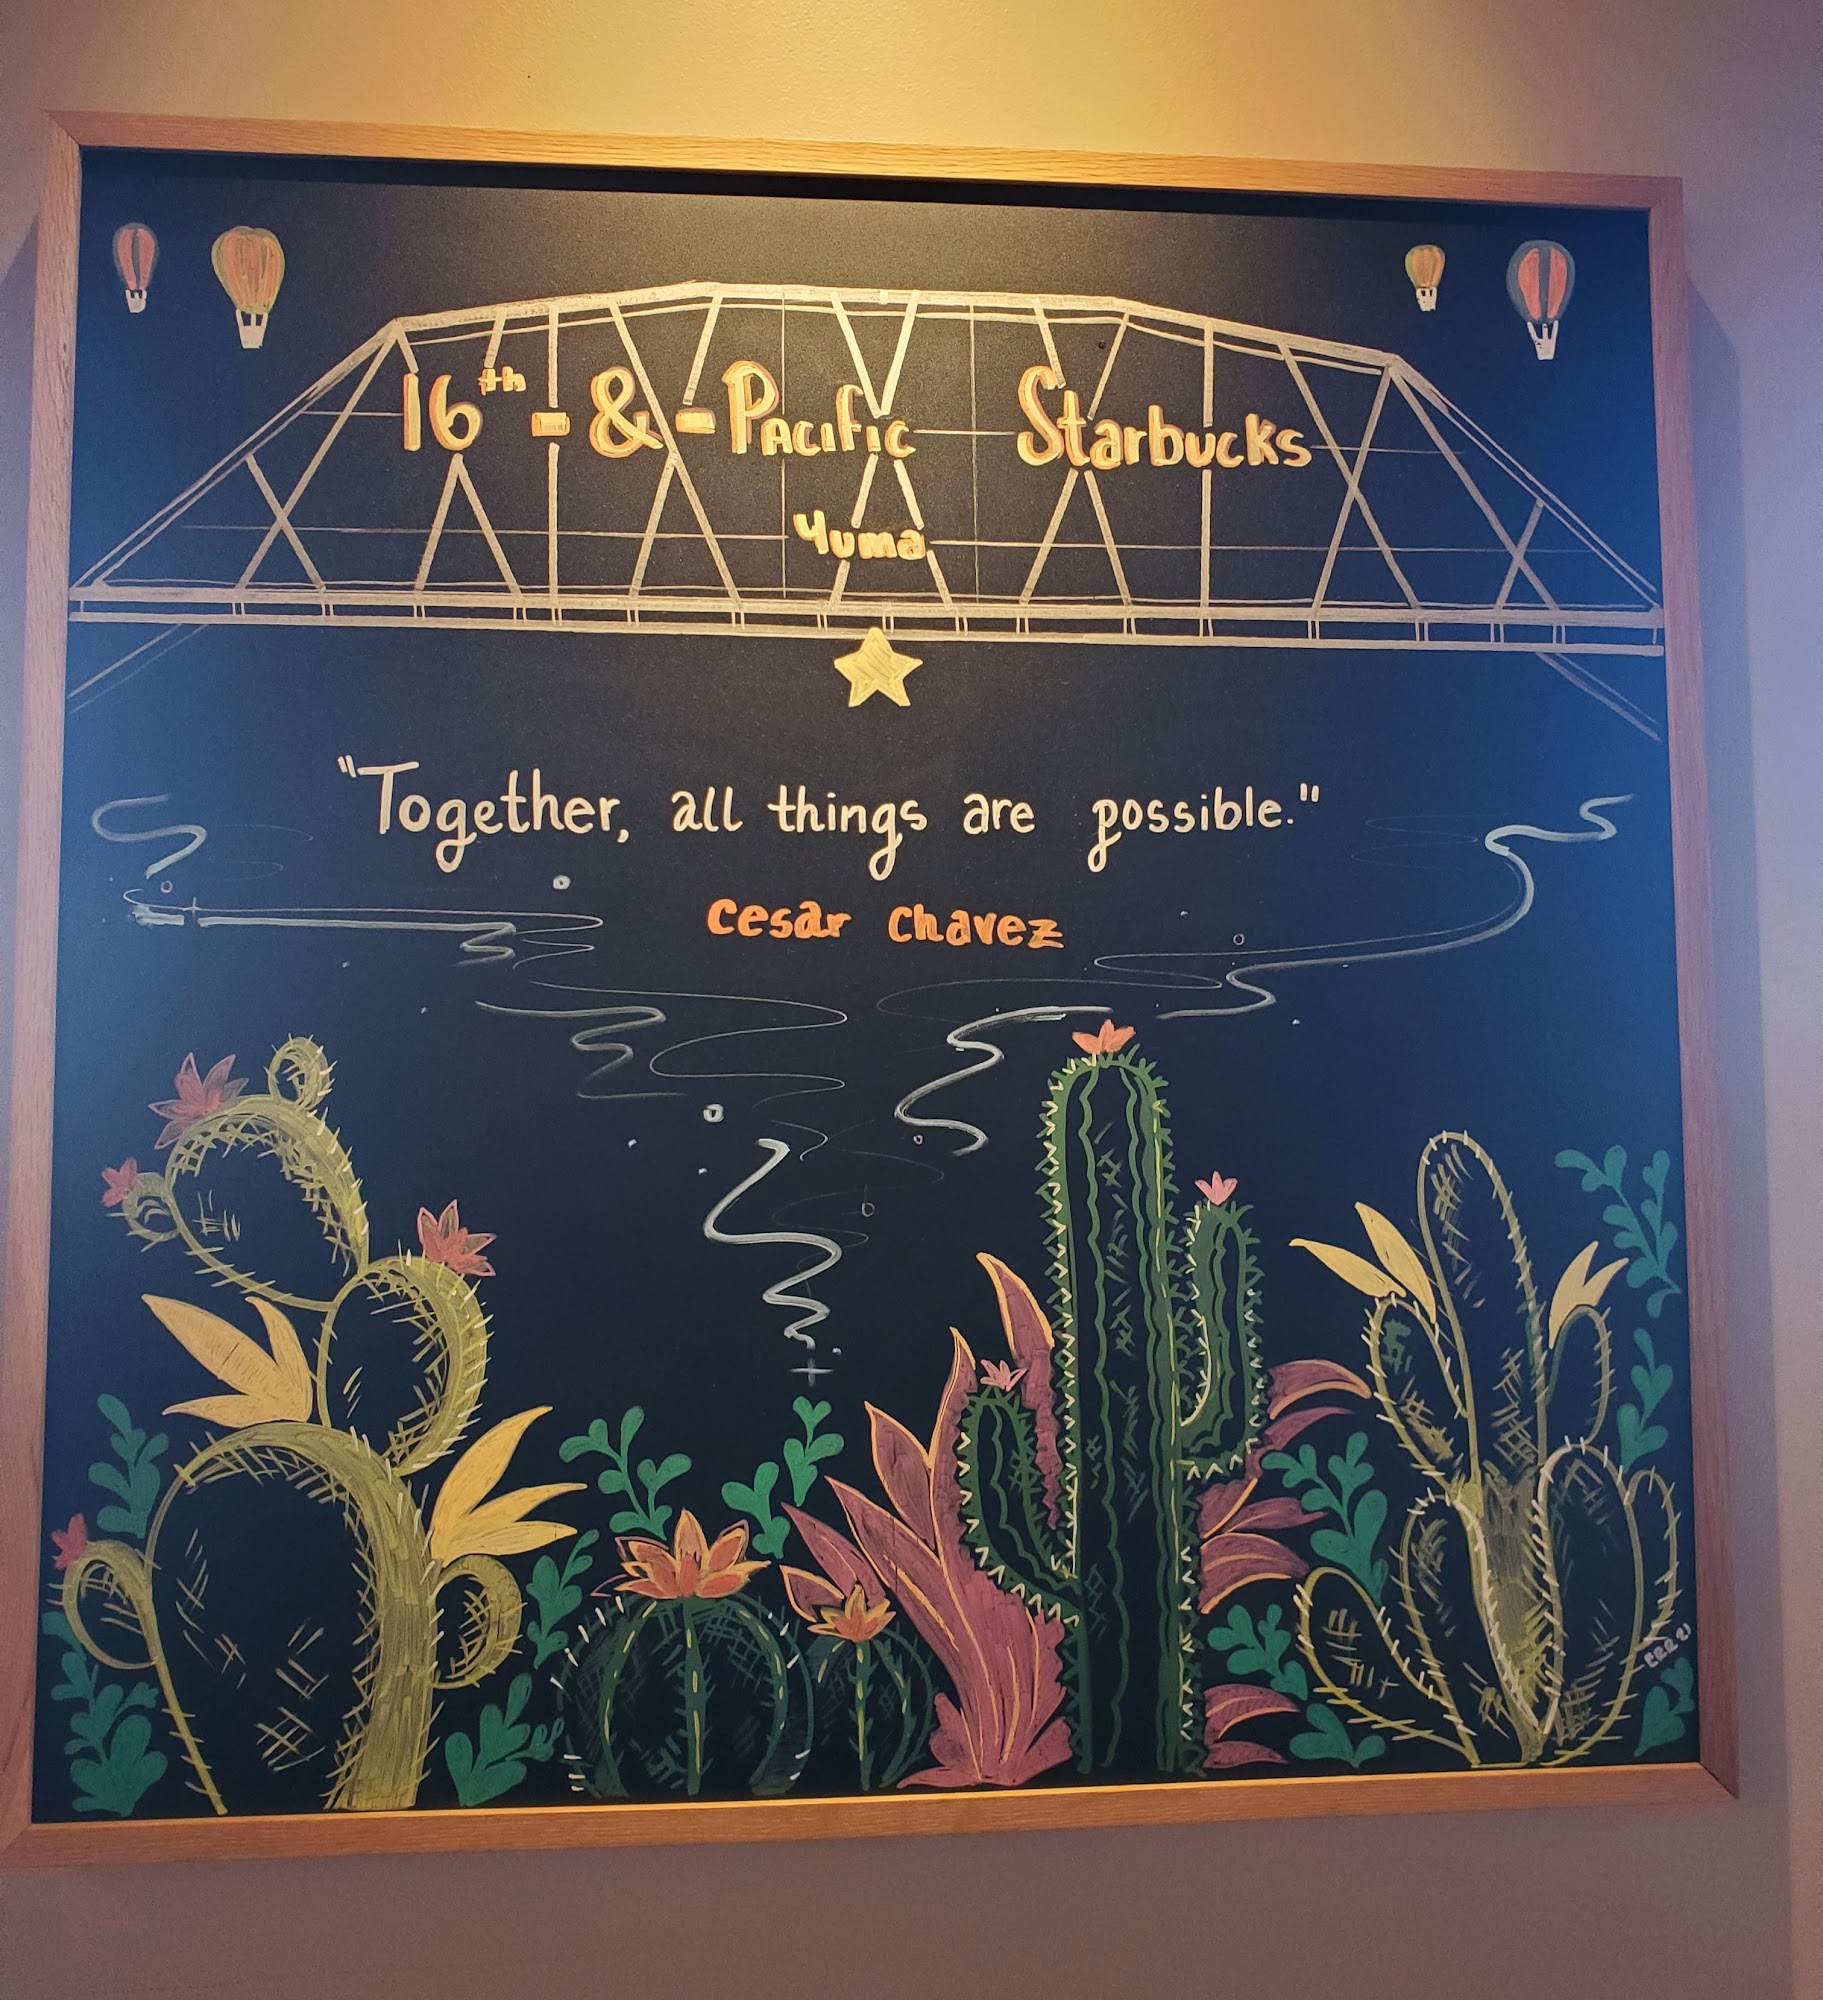 16th - & - Pacific Starbucks
Yuma
"Together, all things are possible."
Cesar Chavez